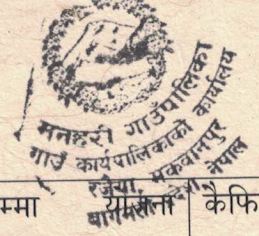 मनहरी गाउँपालिका
गाउँ कार्यपालिकाको कार्यालय
रजैया, मकवानपुर
बागमती प्रदेश, नेपाल
म्मा
कैफि